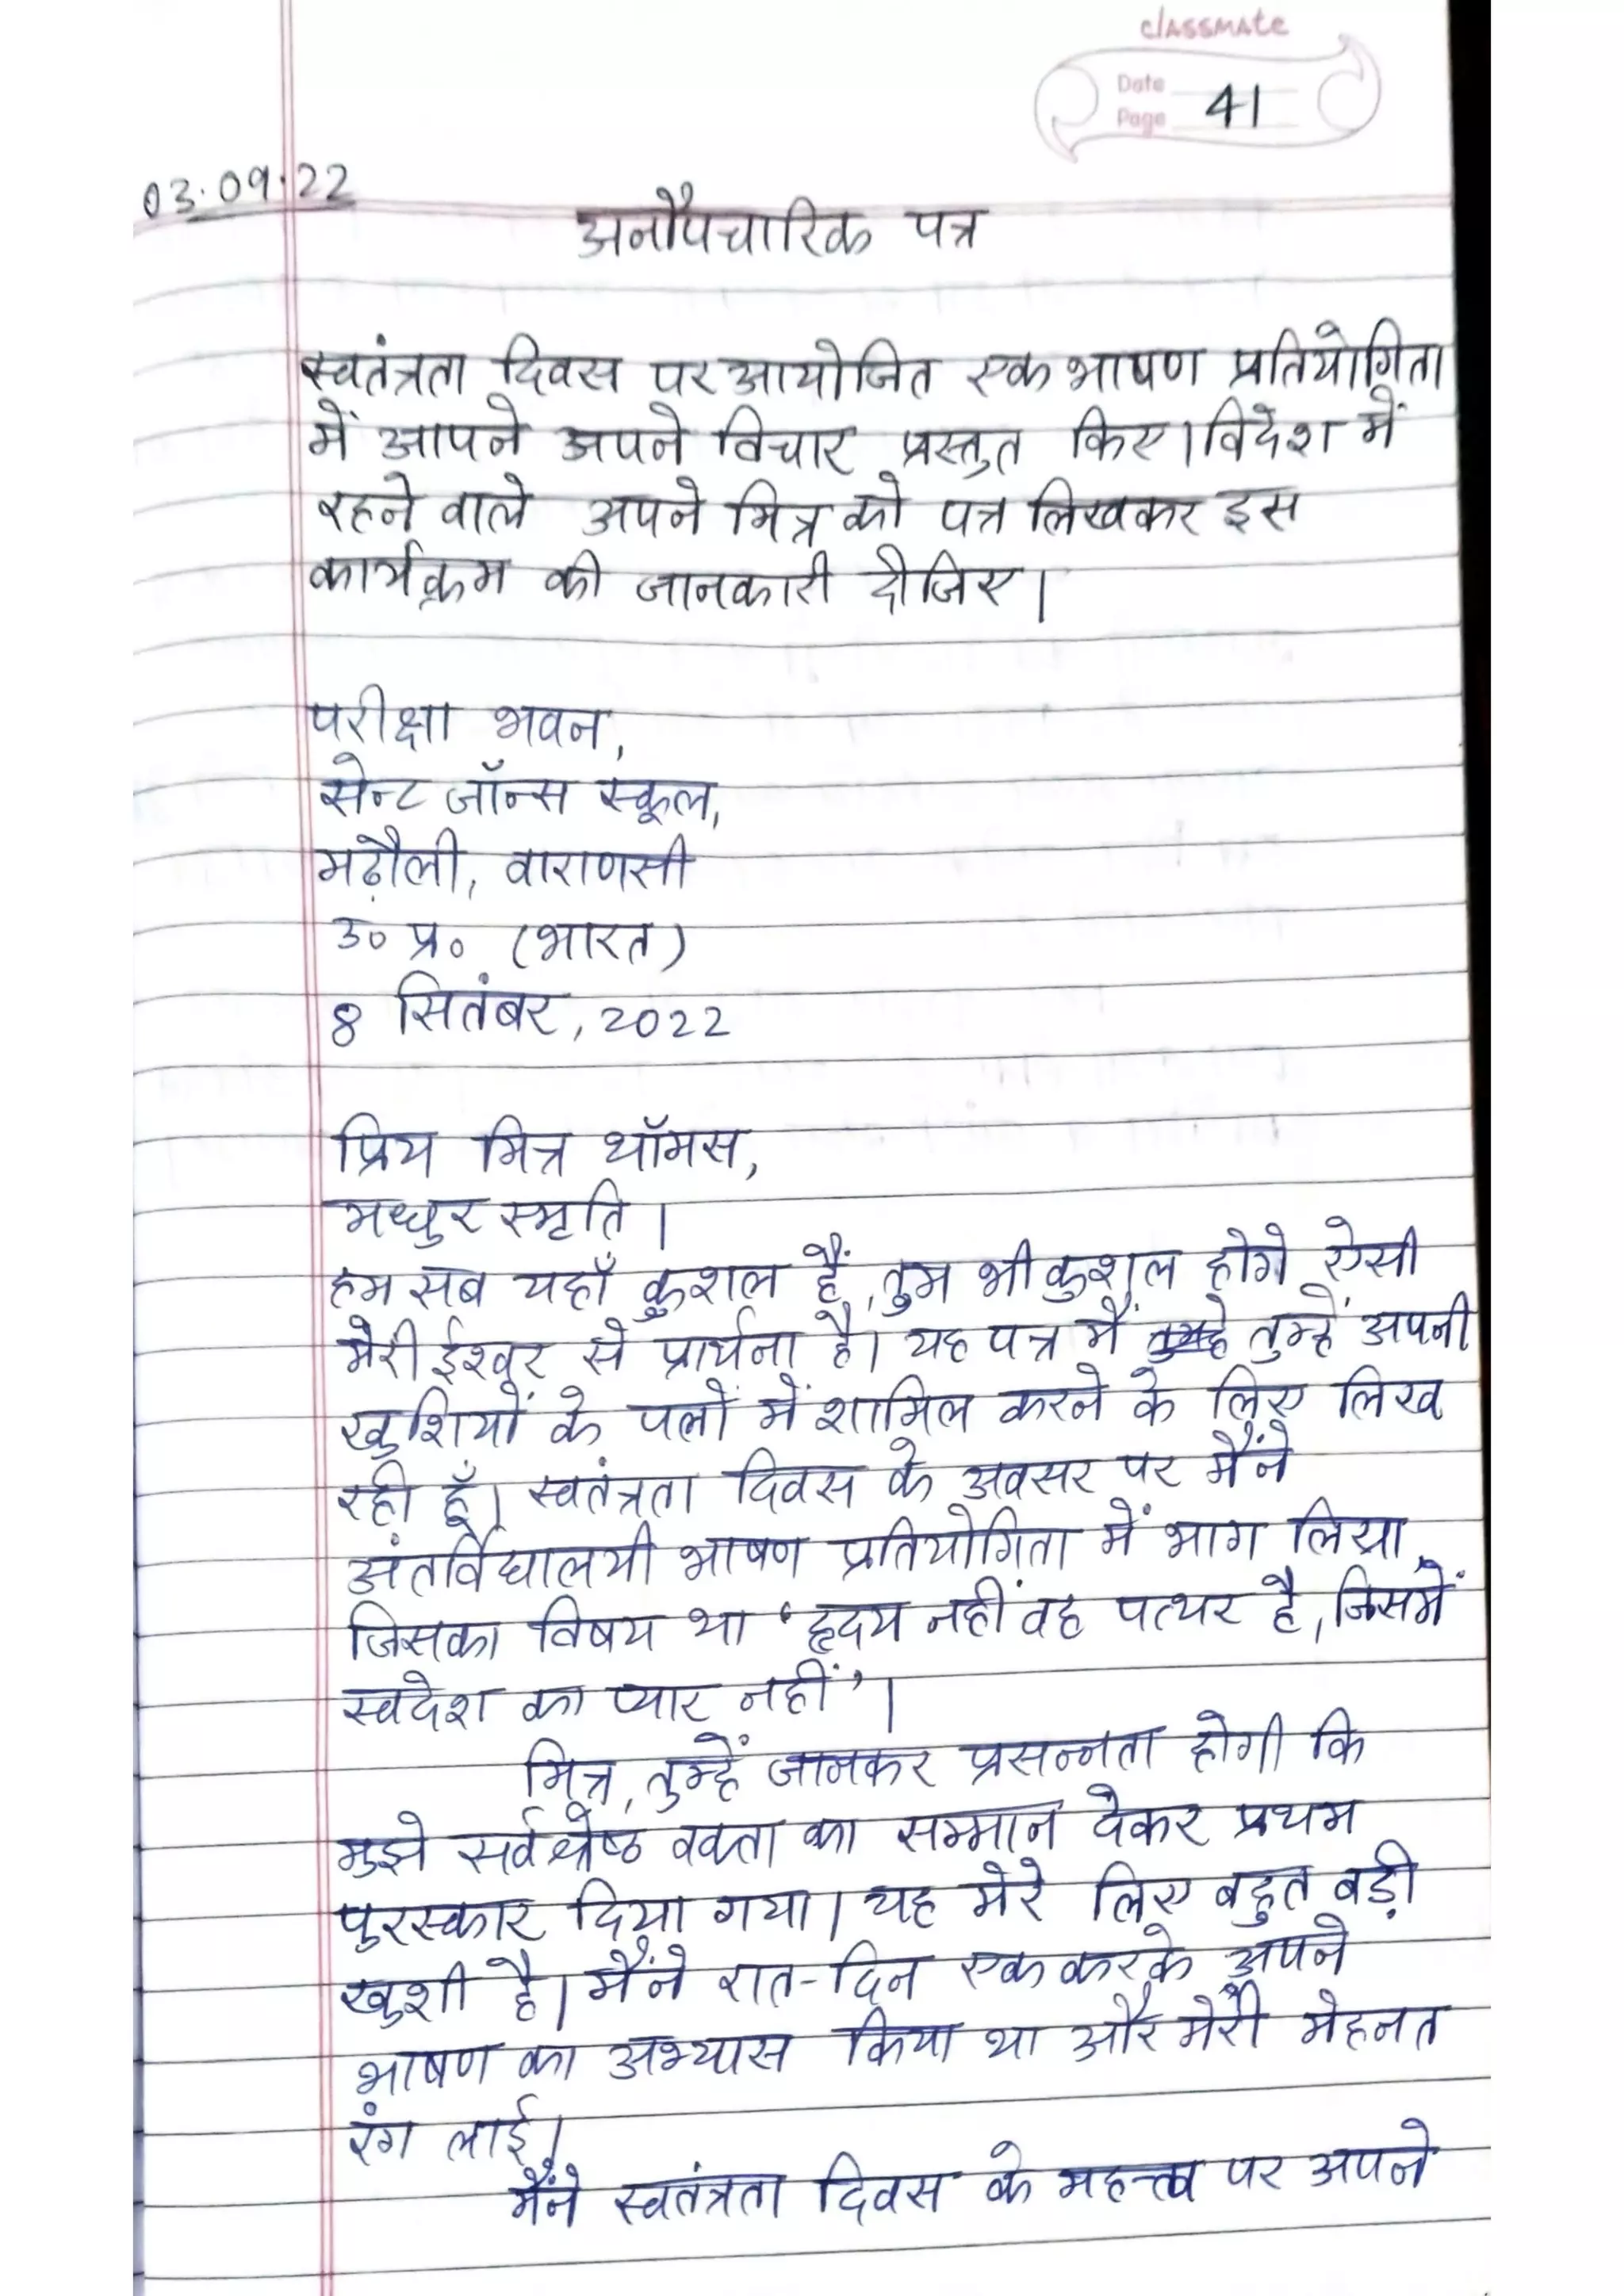 classmate
Date
Page 41
03.09.22
अनौपचारिक पत्र
स्वतंत्रता दिवस पर आयोजित एक भाषण प्रतियोगिता
में आपने अपने विचार प्रस्तुत किए। विदेश में
रहने वाले अपने मित्र को पत्र लिखकर इस
कार्यक्रम की जानकारी दीजिए।
परीक्षा भवन,
सेन्ट जॉन्स स्कूल,
मढ़ौली, वाराणसी
उ० प्र० (भारत)
8 सितंबर, 2022
प्रिय मित्र थॉमस,
मधुर स्मृति।
हम सब यहाँ कुशल हैं, तुम भी कुशल होगे ऐसी
मेरी ईश्वर से प्रार्थना है। यह पत्र मैं तुम्हें अपनी
खुशियों के पलों में शामिल करने के लिए लिख
रही हूँ। स्वतंत्रता दिवस के अवसर पर मैंने
अंतर्विद्यालयी भाषण प्रतियोगिता में भाग लिया,
जिसका विषय था 'हृदय नहीं वह पत्थर है, जिसमें
स्वदेश का प्यार नहीं'।
मित्र, तुम्हें जानकर प्रसन्नता होगी कि
मुझे सर्वश्रेष्ठ वक्ता का सम्मान देकर प्रथम
पुरस्कार दिया गया। यह मेरे लिए बहुत बड़ी
खुशी है। मैंने रात-दिन एक करके अपने
भाषण का अभ्यास किया था और मेरी मेहनत
रंग लाई।
मैंने स्वतंत्रता दिवस के महत्त्व पर अपने